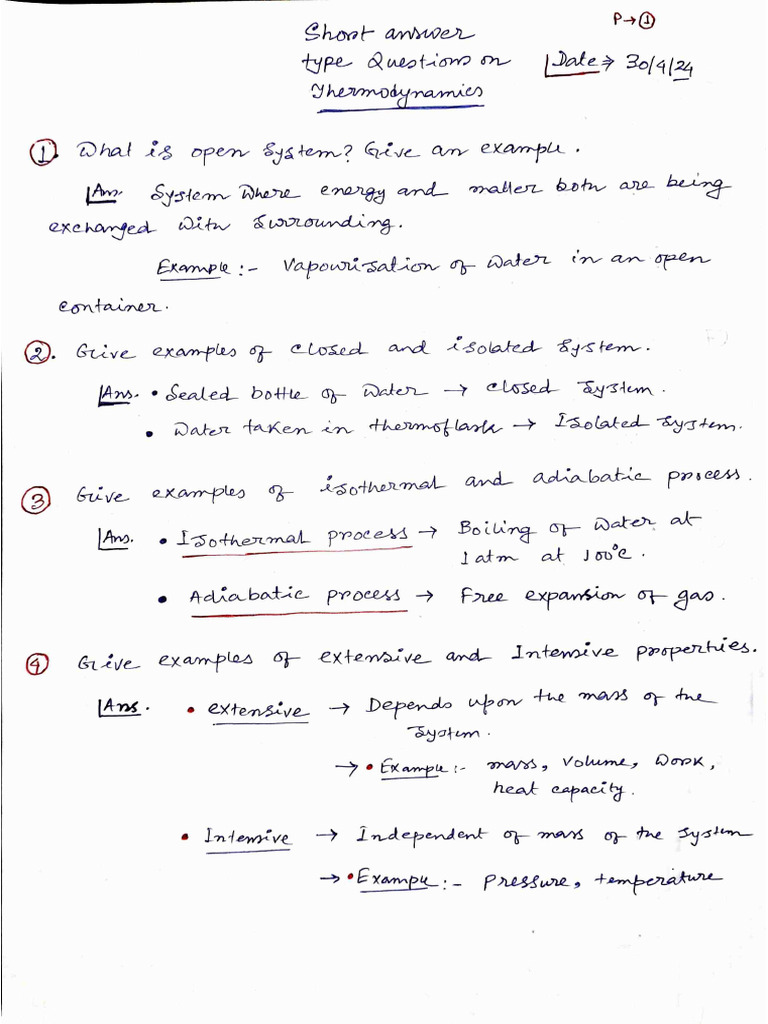 P→①
Short answer
type Questions on
Thermodynamics
Date⇒ 30/4/24
①. What is open system? Give an example.
Ans. System where energy and matter both are being
exchanged with surrounding.
Example:- Vapourisation of water in an open
container.
②. Give examples of closed and isolated system.
Ans. • Sealed bottle of water → closed system.
• Water taken in thermoflask → Isolated system.
③ Give examples of isothermal and adiabatic process.
Ans. • Isothermal process → Boiling of water at
1 atm at 100°C.
• Adiabatic process → Free expansion of gas.
④ Give examples of extensive and Intensive properties.
Ans. • extensive → Depends upon the mass of the
system.
→ • Example:- mass, volume, work,
heat capacity.
• Intensive → Independent of mass of the system
→ • Example:- Pressure, temperature